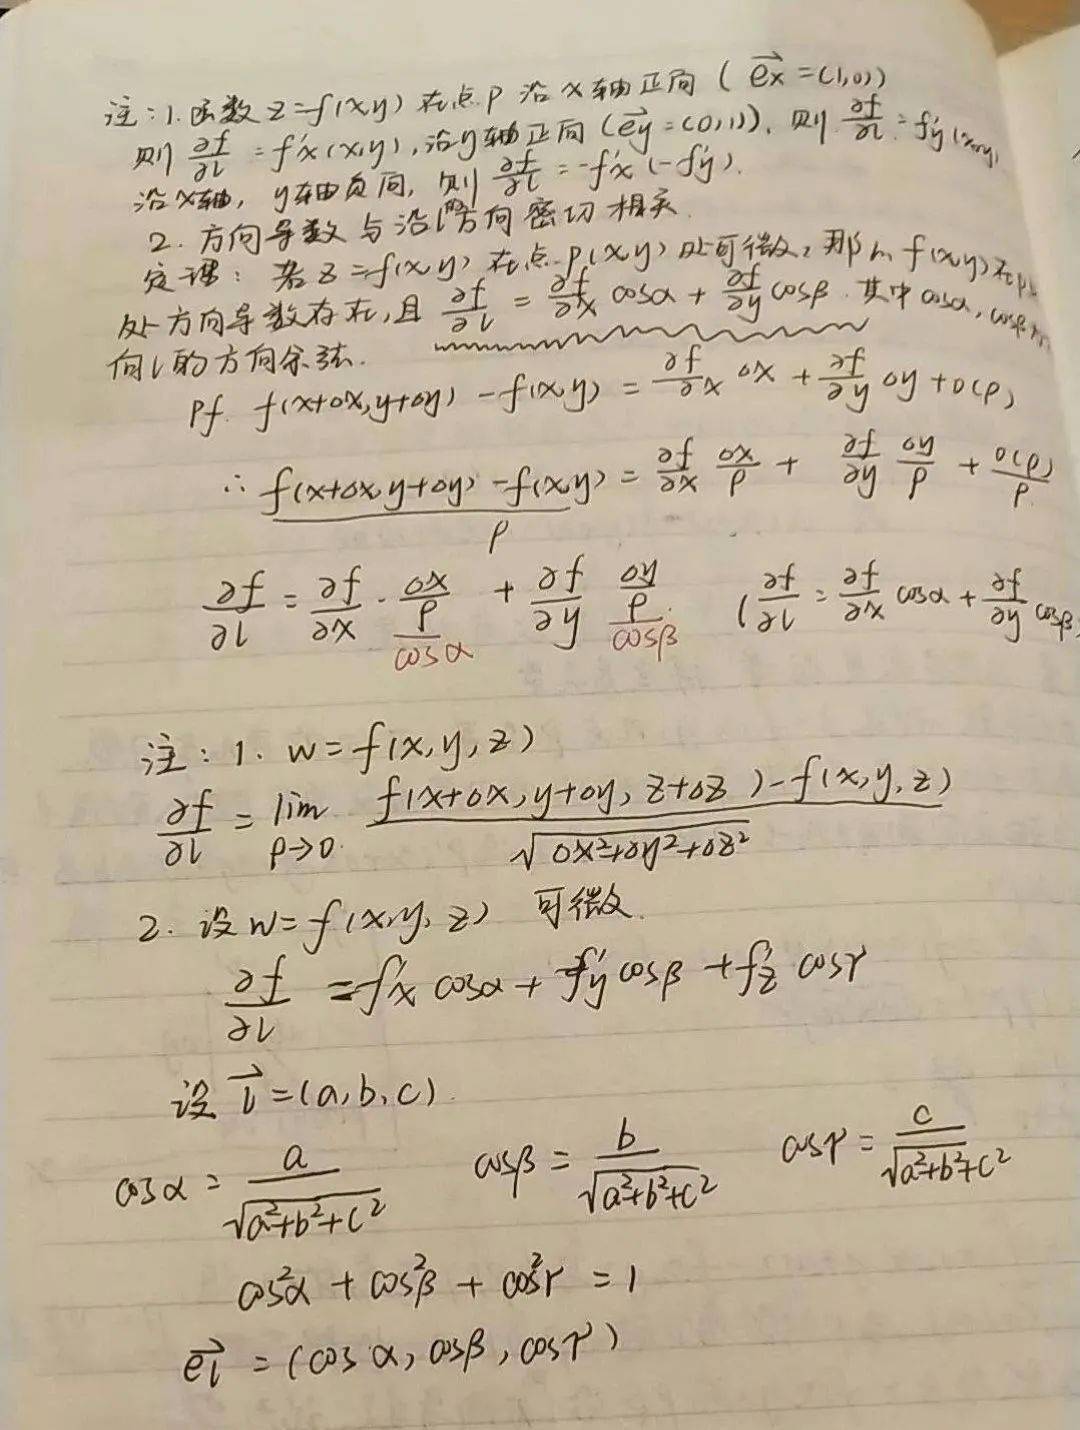 注：1. 函数 z=f(x,y) 在点 P 沿 x 轴正向 ( e⃗x =(1,0))
则 ∂f/∂l = f'x(x,y), 沿 y轴正向 (e⃗y =(0,1)), 则 ∂f/∂l = f'y(x,y)
沿x轴, y轴负向, 则 ∂f/∂l = -f'x (-f'y).
2. 方向导数与沿l的方向密切相关.
定理：若 z=f(x,y) 在点 P(x,y) 处可微, 那么 f(x,y)在P
处方向导数存在, 且 ∂f/∂l = ∂f/∂x cosα + ∂f/∂y cosβ. 其中 cosα, cosβ
向 l 的方向余弦.
Pf. f(x+Δx, y+Δy) - f(x,y) = ∂f/∂x Δx + ∂f/∂y Δy + o(ρ)
∴ f(x+Δx, y+Δy) - f(x,y) / ρ = ∂f/∂x Δx/ρ + ∂f/∂y Δy/ρ + o(ρ)/ρ
∂f/∂l = ∂f/∂x · Δx/ρ + ∂f/∂y Δy/ρ ( ∂f/∂l = ∂f/∂x cosα + ∂f/∂y cosβ
cosα cosβ
注：1. w=f(x,y,z)
∂f/∂l = lim ρ→0 f(x+Δx, y+Δy, z+Δz) - f(x,y,z) / √Δx²+Δy²+Δz²
2. 设 w=f(x,y,z) 可微.
∂f/∂l = f'x cosα + f'y cosβ + f'z cosγ
设 l⃗ =(a,b,c).
cosα = a/√a²+b²+c² cosβ = b/√a²+b²+c² cosγ = c/√a²+b²+c²
cos²α + cos²β + cos²γ = 1
e⃗l = (cosα, cosβ, cosγ)